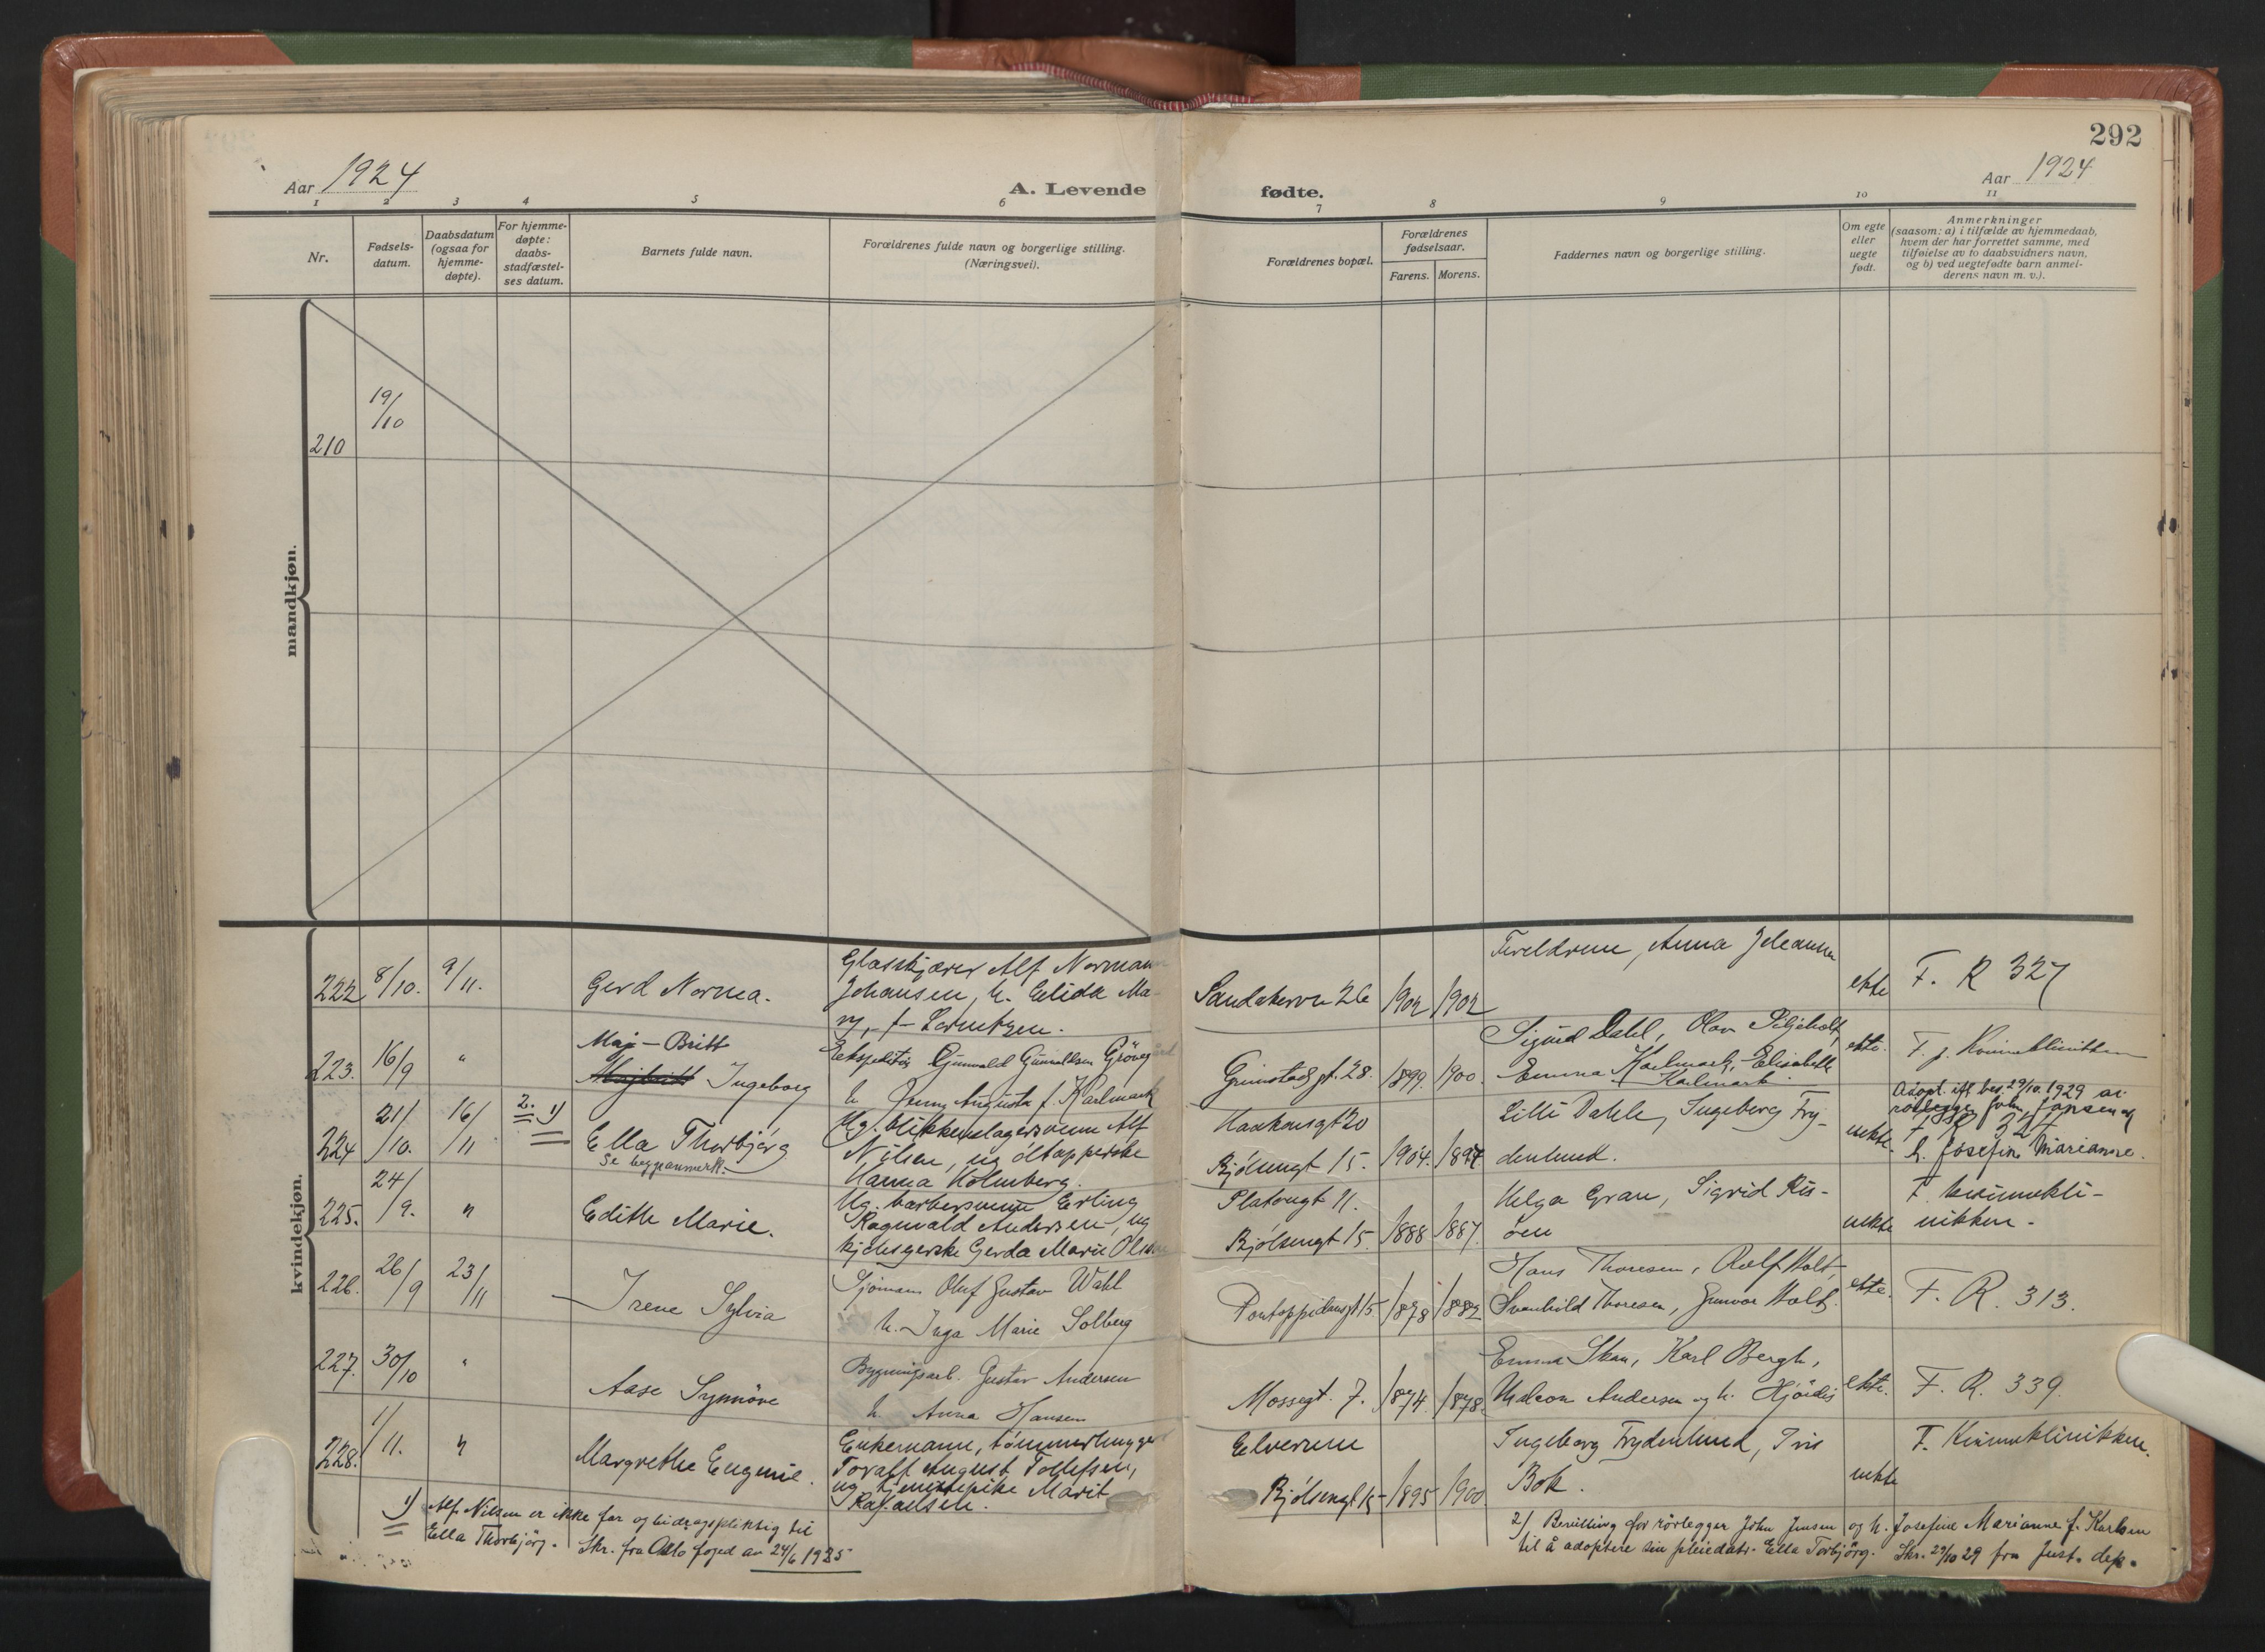 292
Aar 1924
A. Levende
fødte.
Aar 1924
1 2 3 4 5 6 7 8 9 10 11
Nr.
Fødsels-
datum.
Daabsdatum
(ogsaa for
hjemme-
døpte).
For hjemme-
døpte:
daabs-
stadfæstel-
ses datum.
Barnets fulde navn.
Forældrenes fulde navn og borgerlige stilling.
(Næringsvei).
Forældrenes bopæl.
Forældrenes
fødselsaar.
Farens. Morens.
Faddernes navn og borgerlige stilling.
Om egte
eller
uegte
født.
Anmerkninger
(saasom: a) i tilfælde av hjemmedaab,
hvem der har forrettet samme, med
tilføielse av to daabsvidners navn,
og b) ved uegtefødte barn anmel-
derens navn m. v.).
mandkjøn.
210
19/10
kvindekjøn.
222 8/10. 9/11.
Gerd Norma.
Glasskjærer Alf Normann
Johansen, h. Elida Ma-
ry, f. Lorentzen.
Sandakervn 26 1902 1902
Foreldrene, Anna Johanna
ekte
F. R 327
223. 16/9 "
Maj-Britt
Majbritt Ingeborg
Ekspeditör Gunvald Gunvaldsen
h. Jenny Augusta f. Karlmark
Grimstadgt. 28. 1899. 1900.
Sigurd Dahl, Olav
Emma Karlmark, Elisabeth
Karlmark
ekte.
F. p. Kvinneklinikken
224 21/10. 16/11 2. 1)
Ella Thorbjörg
Se begge anmerk.
Ug. blikkenslagersvenn Alf
Nilsen, ug öltapperske
Hanna Holmberg.
Haakonsgt 20
Bjölsengt 15. 1904. 1894
Lilli Dahle, Ingeborg Fry-
denlund.
uekte.
Adopt. ifl bev. 29/10. 1929 av
rörlegger John Jansen og
F. R 324
h. Josefine Marianne.
225. 24/9. "
Edith Marie.
Ug. barbersvenn Erling
Ragnvald Andersen, ug
Gerda Marie Olsen
Platougt 11.
Bjölsengt 15. 1888 1887.
Helga Gran, Sigrid Ris-
öen
uekte
F. kvinnekli-
nikken -
226. 26/9 23/11
Irene Sylvia
Sjömann Oluf Gustav Wahl
h. Inga Marie Solberg
Pontoppidansgt 15. 1878 1882
Hans Thoresen, Rolf Holt,
Svanhild Thoresen, Gunvor Holt.
ekte.
F. R. 313.
227. 30/10 "
Aase Synnöve
Bygningsarb. Gustav Andersen
h. Anna Hansen
Mossegt. 7. 1874. 1878.
Emma Skau, Karl Bergh,
Haakon Andersen og h. Hjördis
ekte.
F. R. 339.
228. 1/11. "
Margrethe Eugenie.
Enkemann, tömmerhugger
Toralf August Tollefsen,
ug tjenestepike Marit
Rafaelsen.
Elverum
Bjölsengt 15 1895 1900.
Ingeborg Frydenlund, Iris
Bok.
uekte
F. Kvinneklinikken.
1) Alf Nilsen er ikke far og bidragspliktig til
Ella Thorbjörg. Skr. fra Oslo foged av 24/6 1925
2) Bevilling for rörlegger John Jensen og h. Josefine Marianne f. Karlsen
til å adoptere sin pleiedatr. Ella Torbjörg. Skr. 29/10 29 fra Just. dep.